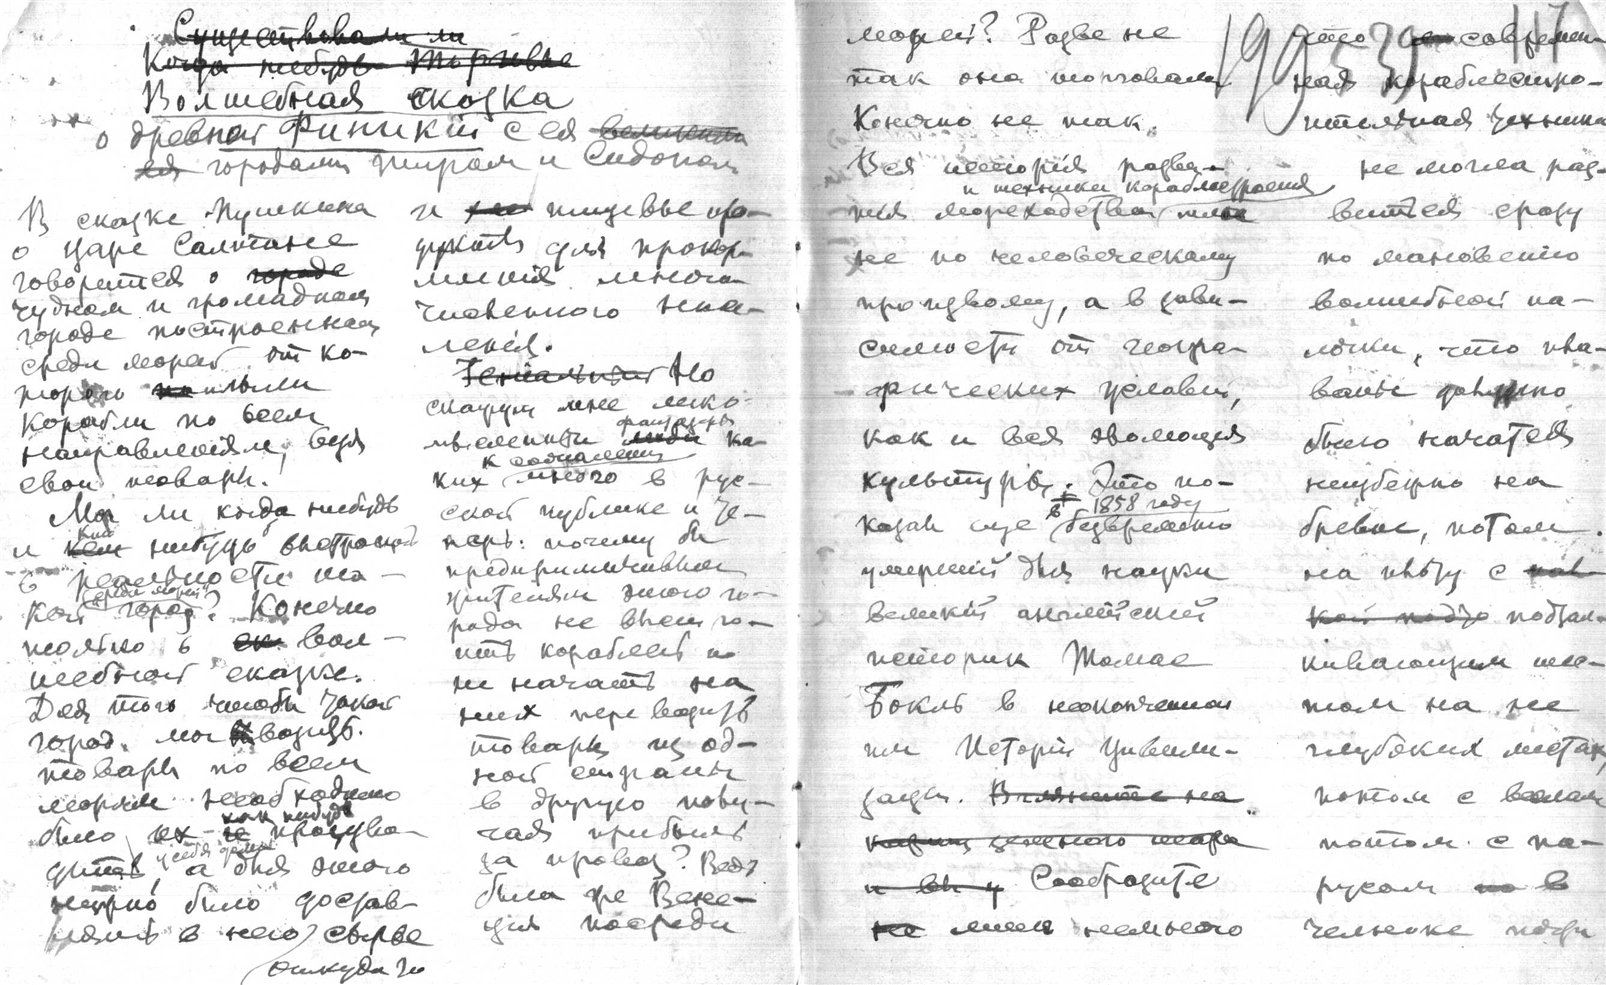 Существовали ли
Когда нибудь
Волшебная сказка
о древней Финикіи с ея
городами Тиром и Сидоном
В сказке Пушкина
о царе Салтане
говорится о городе
чудном и громадном
городе построенном
среди морей от ко-
торого плыли
Корабли по всем
направленіям, везя
свои товары.
Мог ли когда нибудь
и кем нибудь выстроиться
в реальности та-
кой город? Конечно
среди морей
только в вол-
шебной сказке.
Для того чтобы такой
город мог возить
товары по всем
морям необходимо
было их как нибудь произво-
дить у себя дома, а для этого
нужно было достав-
лять в него сырье
откуда то
и пищевые про-
дукты для прокор-
мленія много-
численного насе-
ленія.
Но
скажут мне легко-
мысленные фантазеры ка-
ких к сожаленію много в рус-
ской публике и те-
перь: почему бы
предпримчивым
жителям этого го-
рода не выстро-
ить кораблей и
не начать на
них перевозить
товары из од-
ной страны
в другую полу-
чая прибыль
за провоз? Ведь
была же Вене-
ція посреди
морей? Разве не
так она торговала
Конечно не так.
Вся исторія разви-
тія мореходства и техники кораблестроенія шла
не по человеческому
произволу, а в зави-
симости от геогра-
фических условій,
как и вся эволюція
культуры. Это по-
казал еще в 1858 году безвременно
умершій для науки
великій англійскій
историк Томас
Бокль в неоконченной
им Исторіи Цивили-
заціи. Взгляните на
карту земного шара
Сообразите
не мисля немного
что современ-
ная кораблестро-
ительная техника
не могла раз-
виться сразу
по мановенію
волшебной па-
лочки, что пла-
ванье должно
было начаться
неизбежно на
бревне, потом
на плоту с
подтал-
кивающим шес-
том на не
глубоких местах,
потом с веслом
потом с па-
русом в
челноке